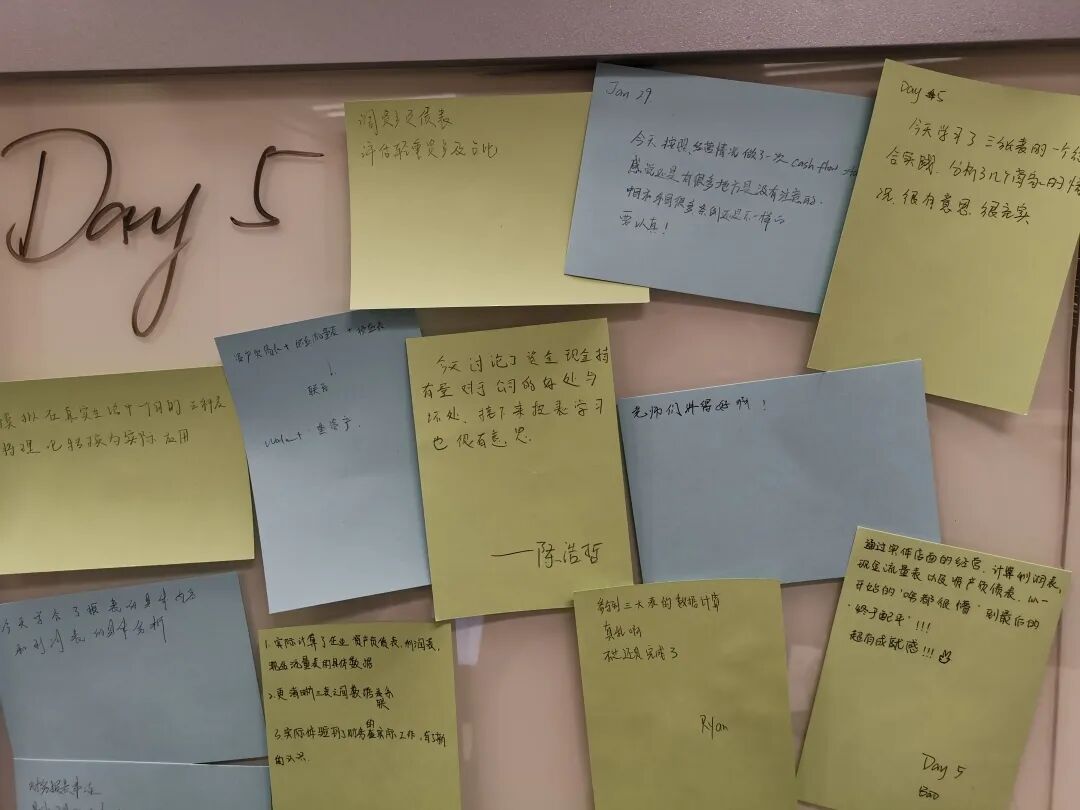 Day 5
评估轻重资产及占比
Jan 29
今天按照经营情况做了一次cash flow
感觉还是有很多地方是没有注意的.
要认真!
Day #5
今天学习了三张表的一个综
合实践. 分析了几个商家的情
况. 很有意思 很充实
模拟在真实生活中一个月的
与实际应用
资产负债表+现金流量表+利润表
↓
联系
重资产.
今天讨论了资金现金持
有量对于公司的好处与
坏处. 接下来报表学习
也很有意思.
——陈浩哲
老师们讲得好啊!
今天学会了报表的具体内容
和利润表的具体分析
1. 实际计算了企业资产负债表, 利润表,
现金流量表的具体数据
2. 更清晰三表之间数据联系
3. 实际体验到了财务的实际工作, 有了新
的认识.
三大表的数据计算
真乱啊
不过还是完成了
Ryan
通过实体店面的经营, 计算利润表,
现金流量表以及资产负债表. 从一
开始的"啥都很懵"到最后的
"终于配平"!!!
超有成就感!!!
Day 5